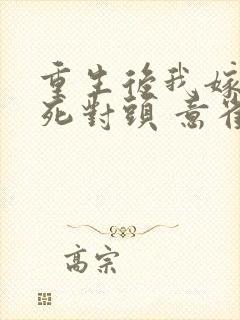 重生後我嫁
死對頭 意雀
高宗